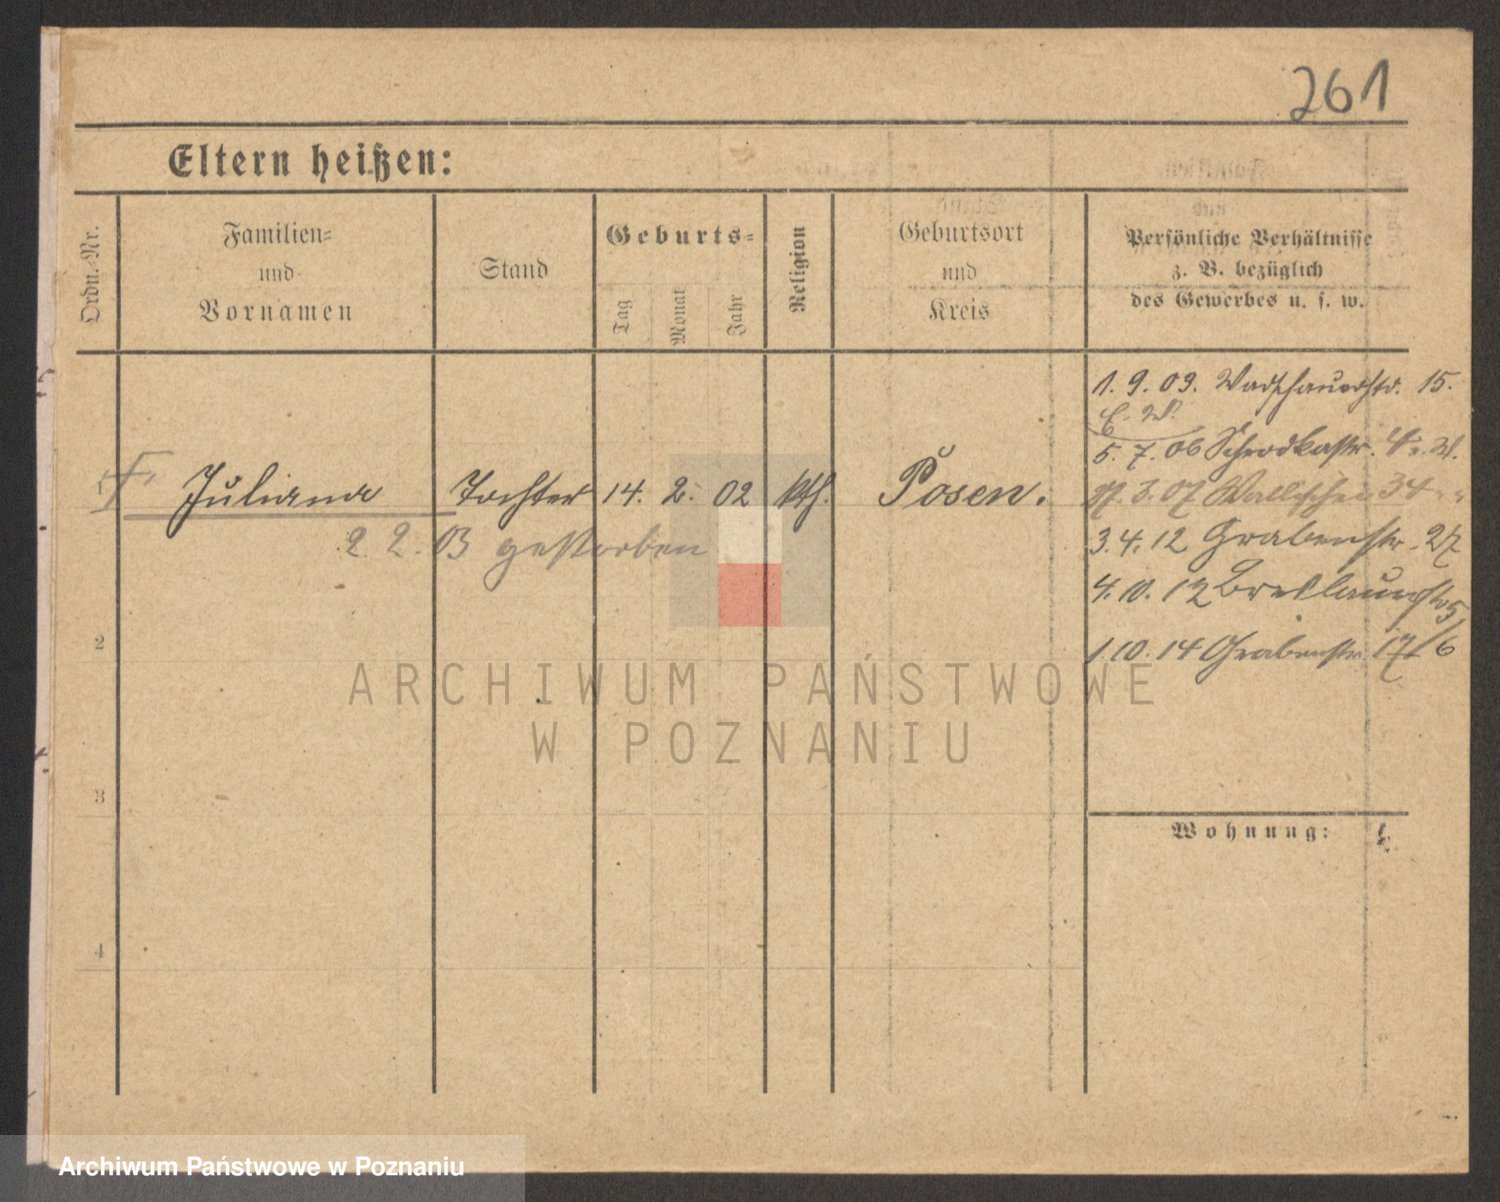 261
Eltern heißen:
Ordn.-Nr.
Familien-
und
Vornamen
Stand
Geburts-
Tag
Monat
Jahr
Religion
Geburtsort
und
Kreis
Persönliche Verhältnisse
z. B. bezüglich
des Gewerbes u. s. w.
1. 9. 03. 15.
5. 7. 06 Schrodkastr.
1 Juliana Tochter 14. 2. 02 kth. Posen.
3. 07 Wallischei 34
2. 2. 03 gestorben
3. 4. 12 Grabenstr. 27
4. 10. 12 Breslauerstr
2
1. 10. 14 Grabenstr. 17/6
ARCHIWUM PAŃSTWOWE
W POZNANIU
3
Wohnung:
4
Archiwum Państwowe w Poznaniu